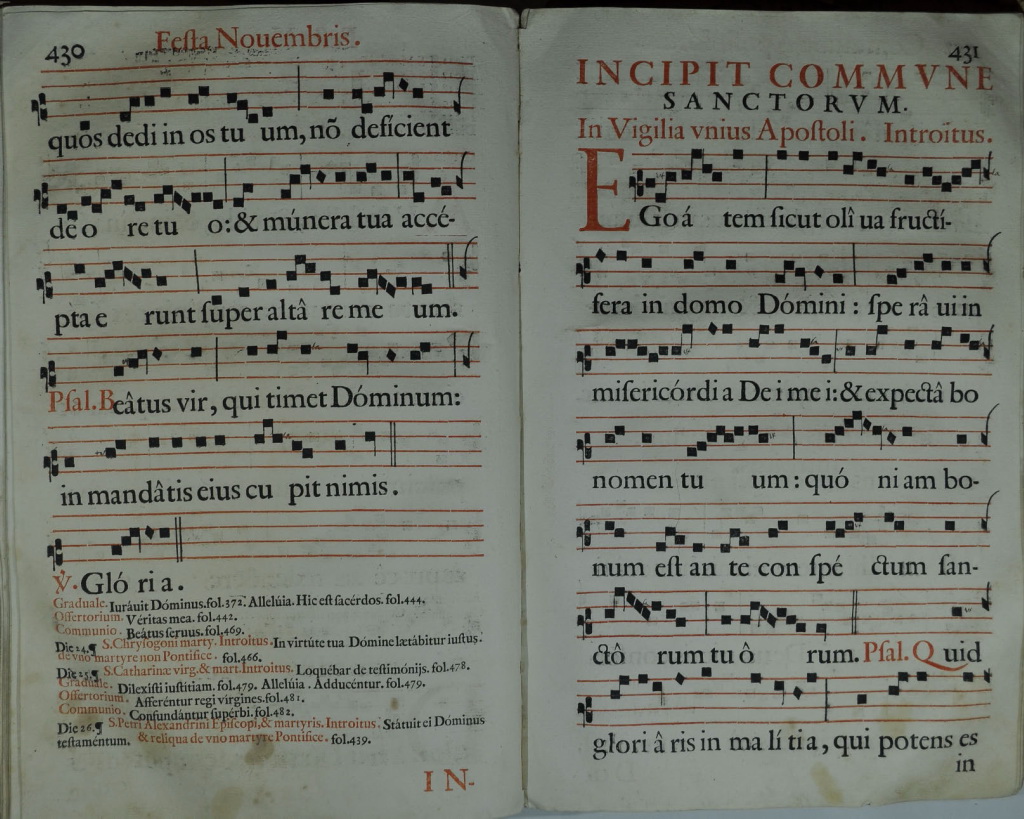 430
Festa Nouembris.
quos dedi in os tu um, nõ deficient
de o re tu o: & múnera tua accé-
pta e runt super altâ re me um.
Psal. Beâtus vir, qui timet Dóminum:
in mandâtis eius cu pit nimis.
℣. Gló ri a.
Graduale. Iuráuit Dóminus. fol. 372. Allelúia. Hic est sacérdos. fol. 444.
Offertorium. Véritas mea. fol. 442.
Communio. Beâtus seruus. fol. 469.
Die 24. ¶ S. Chrysogoni marty. Introitus. In virtúte tua Dómine lætábitur iustus.
de vno martyre non Pontifice. fol. 466.
Die 25. ¶ S. Catharinæ virg. & mart. Introitus. Loquébar de testimónijs. fol. 478.
Graduale. Dilexísti iustitiam. fol. 479. Allelúia. Adducéntur. fol. 479.
Offertorium. Afferéntur regi vírgines. fol. 481.
Communio. Confundántur supérbi. fol. 482.
Die 26. ¶ S. Petri Alexandrini Episcopi, & martyris. Introitus. Státuit ei Dóminus
testaméntum. & reliqua de vno martyre Pontifice. fol. 439.
IN-
431
INCIPIT COMMVNE
SANCTORVM.
In Vigilia vnius Apostoli. Introitus.
EGo á tem sicut olî ua fructí-
fera in domo Dómini: spe râ ui in
misericórdi a De i me i: & expectâ bo
nomen tu um: quó ni am bo-
num est an te con spé ctum san-
ctô rum tu ô rum. Psal. Quid
glori â ris in ma lí ti a, qui potens es
in